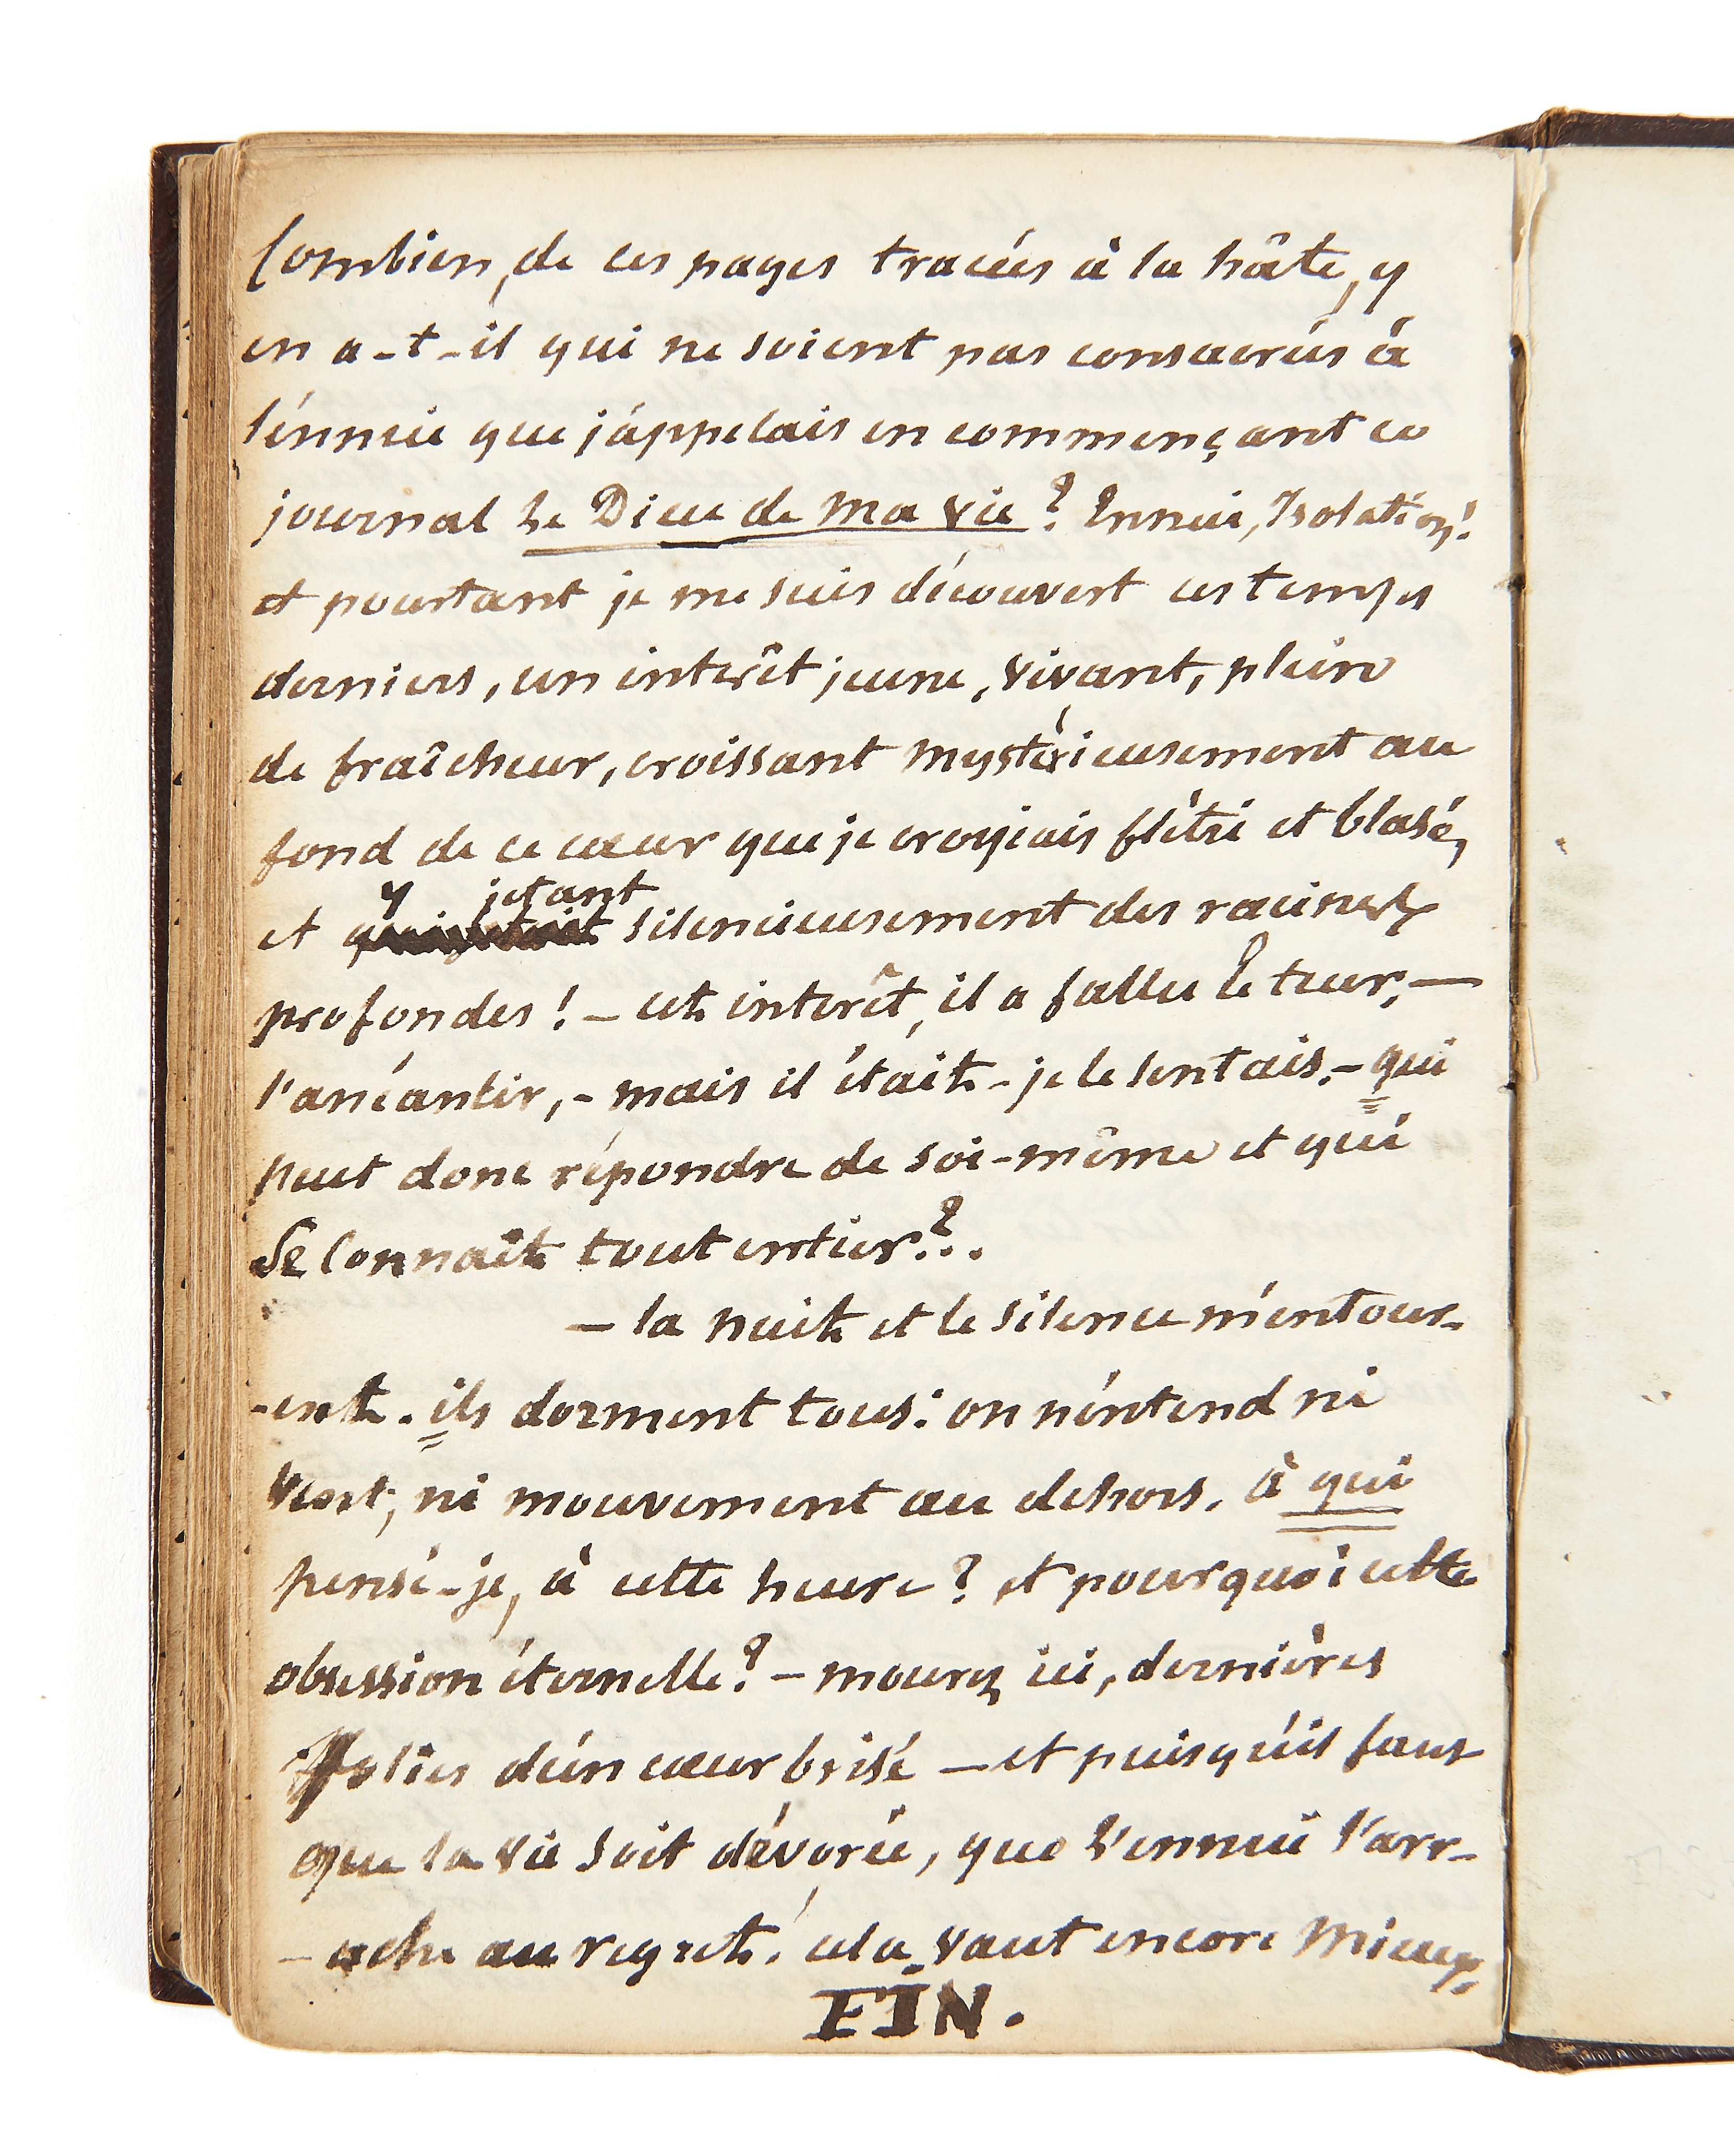 Combien, de ces pages tracées à la hâte, y
en a-t-il qui ne soient pas consacrées à
l'ennui que j'appelais en commençant ce
journal Le Dieu de ma vie? Ennui, Isolation!
et pourtant je me suis découvert ces temps
derniers, un interêt jeune, vivant, plein
de fraîcheur, croissant mystérieusement au
fond de ce cœur que je croyiais flétri et blasé,
y jetant
et silencieusement des racines
profondes! – cet interêt, il a fallu le tuer, —
l'anéantir, – mais il était – je le sentais. – qui
peut donc répondre de soi-même et qui
Se connaît tout entier?..
— la nuit et le silence m'entour-
-ent. ils dorment tous: on n'entend ni
vent, ni mouvement au dehors. à qui
pensé-je, à cette heure? et pourquoi cette
obsession éternelle? – mourez ici, dernières
folies d'un cœur brisé — et puisqu'il faut
que la vie soit dévorée, que l'ennui l'arr-
-ache au regret! cela vaut encore mieux.
FIN.